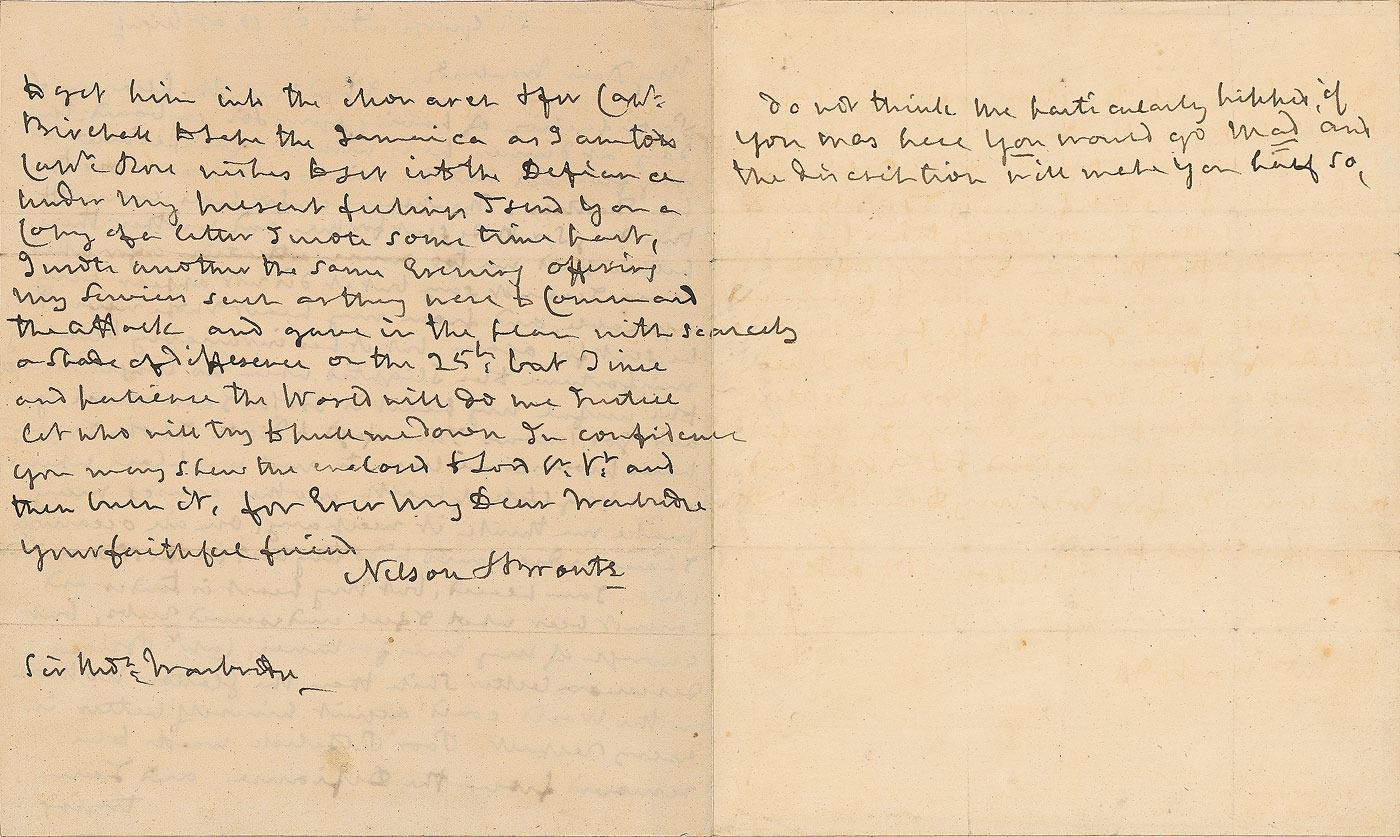 to get him into the Monarch & for Capt:
Birchall to take the Jamaica as I am told
Capt: Rose wishes to get into the Defiance
under my present feelings I send you a
Copy of a letter I wrote some time past,
I wrote another the same Evening offering
my services such as they were to Command
the attack and gave in the plan with scarcely
a shade of difference on the 25th: but I need
and patience the World will do me Justice
let who will try to pull me down In confidence
you may shew the enclosed to Lord St: Vt: and
then burn it, for Ever My Dear Troubridge
your faithful friend
Nelson & Bronte
Sir Thos: Troubridge
do not think me particularly hipped, if
you was here you would go Mad and
the description will make you half so,